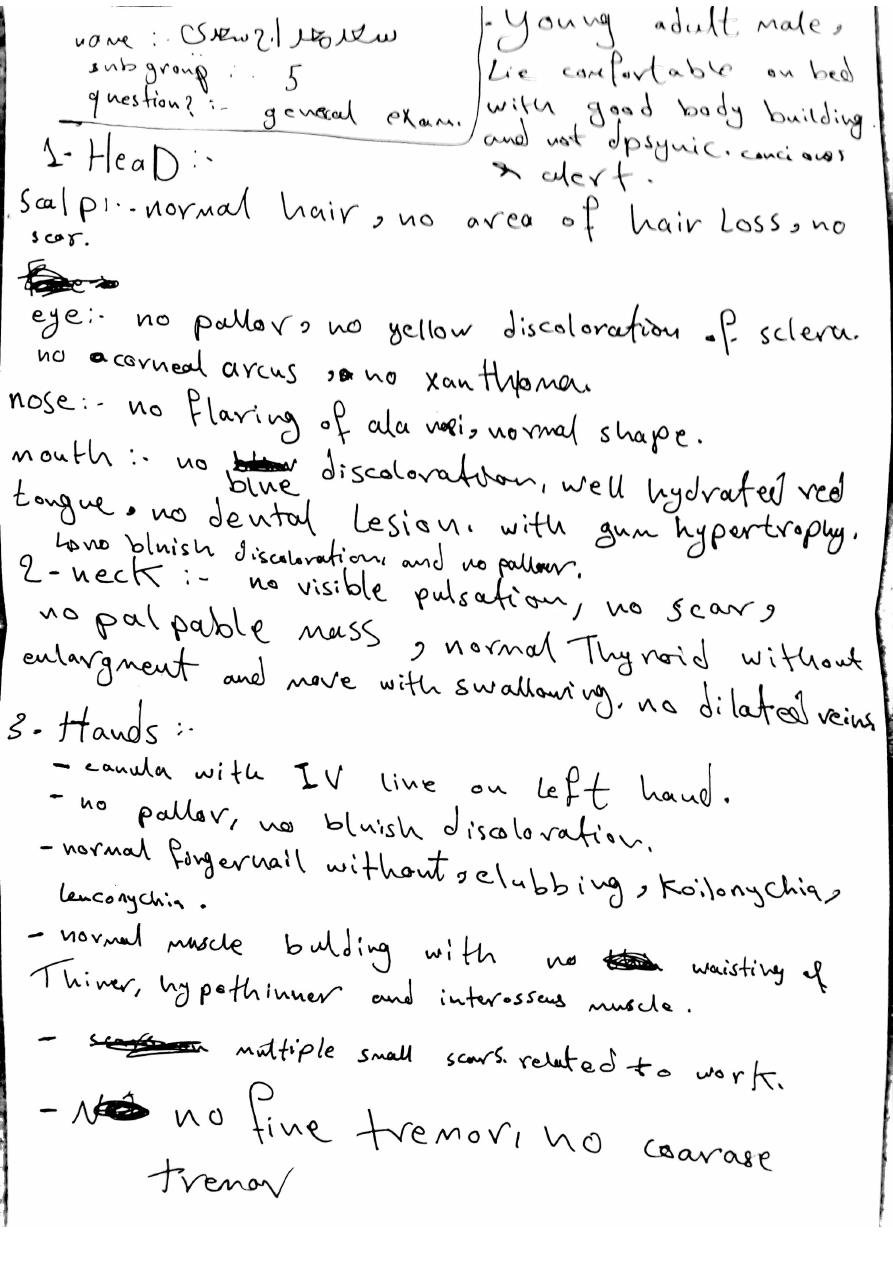 name :-
sub group :- 5
question? :- general exam.
- Young adult male,
Lie comfortable on bed
with good body building.
and not dpsynic. concious
& alert.
1- HeaD :-
Scalp :- normal hair, no area of hair Loss, no
scar.
eye :- no pallor, no yellow discoloration of sclera.
no corneal arcus, no xanthoma.
nose :- no flaring of ala nasi, normal shape.
mouth :- no blue discoloration, well hydrated red
tongue, no dental Lesion. with gum hypertrophy.
no bluish discoloration, and no pallour.
2- neck :- no visible pulsation, no scar,
no palpable mass, normal Thyroid without
enlargment and move with swallowing. no dilated veins
3- Hands :-
- canula with IV line on Left hand.
- no pallor, no bluish discoloration.
- normal fingernail without, clubbing, Koilonychia,
Leuconychia.
- normal muscle bulding with no waisting of
Thiner, hypothinner and interosseus muscle.
- multiple small scars. related to work.
- no fine tremor, no coarase
tremor